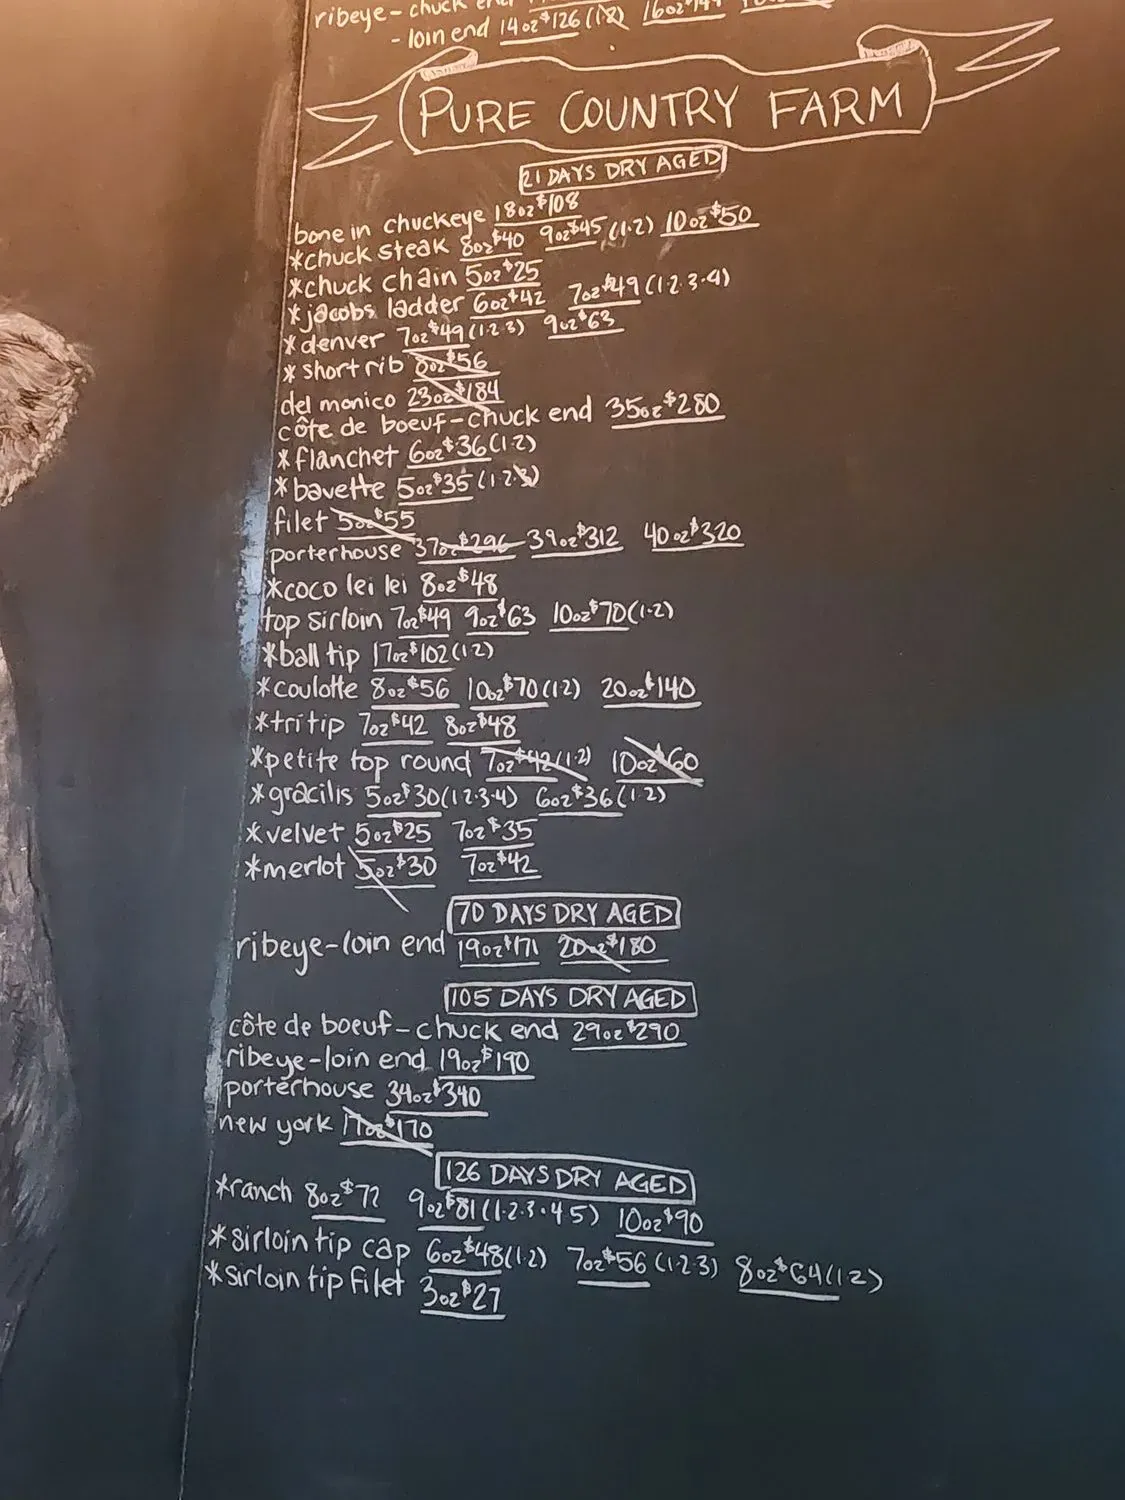 ribeye-chuck end
-loin end 14oz $126 (1·2) 16oz $144
PURE COUNTRY FARM
21 DAYS DRY AGED
bone in chuckeye 18oz $108
*chuck steak 8oz $40 9oz $45 (1·2) 10oz $50
*chuck chain 5oz $25
*jacobs ladder 6oz $42 7oz $49 (1·2·3·4)
*denver 7oz $49 (1·2·3) 9oz $63
*short rib 8oz $56
del monico 23oz $184
côte de boeuf-chuck end 35oz $280
*flanchet 6oz $36 (1·2)
*bavette 5oz $35 (1·2·3)
filet 5oz $55
porterhouse 37oz $296 39oz $312 40oz $320
*coco lei lei 8oz $48
top sirloin 7oz $49 9oz $63 10oz $70 (1·2)
*ball tip 17oz $102 (1·2)
*coulotte 8oz $56 10oz $70 (1·2) 20oz $140
*tri tip 7oz $42 8oz $48
*petite top round 7oz $42 (1·2) 10oz $60
*gracilis 5oz $30 (1·2·3·4) 6oz $36 (1·2)
*velvet 5oz $25 7oz $35
*merlot 5oz $30 7oz $42
70 DAYS DRY AGED
ribeye-loin end 19oz $171 20oz $180
105 DAYS DRY AGED
côte de boeuf-chuck end 29oz $290
ribeye-loin end 19oz $190
porterhouse 34oz $340
new york 17oz $170
126 DAYS DRY AGED
*ranch 8oz $72 9oz $81 (1·2·3·4·5) 10oz $90
*sirloin tip cap 6oz $48 (1·2) 7oz $56 (1·2·3) 8oz $64 (1·2)
*sirloin tip filet 3oz $27